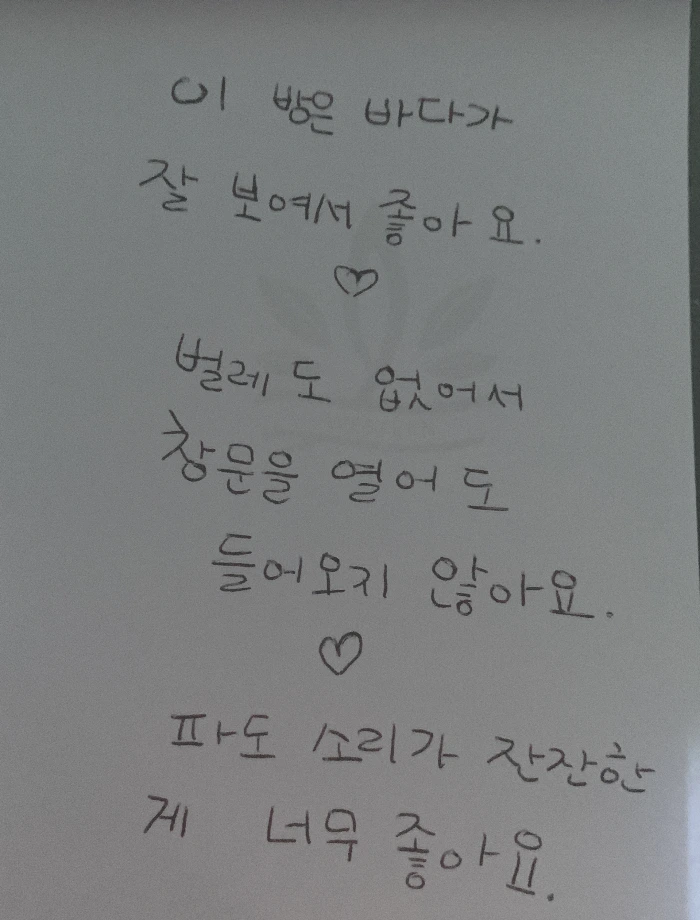 이 방은 바다가
잘 보여서 좋아요.
♡
벌레도 없어서
창문을 열어도
들어오지 않아요.
♡
파도 소리가 잔잔한
게 너무 좋아요.